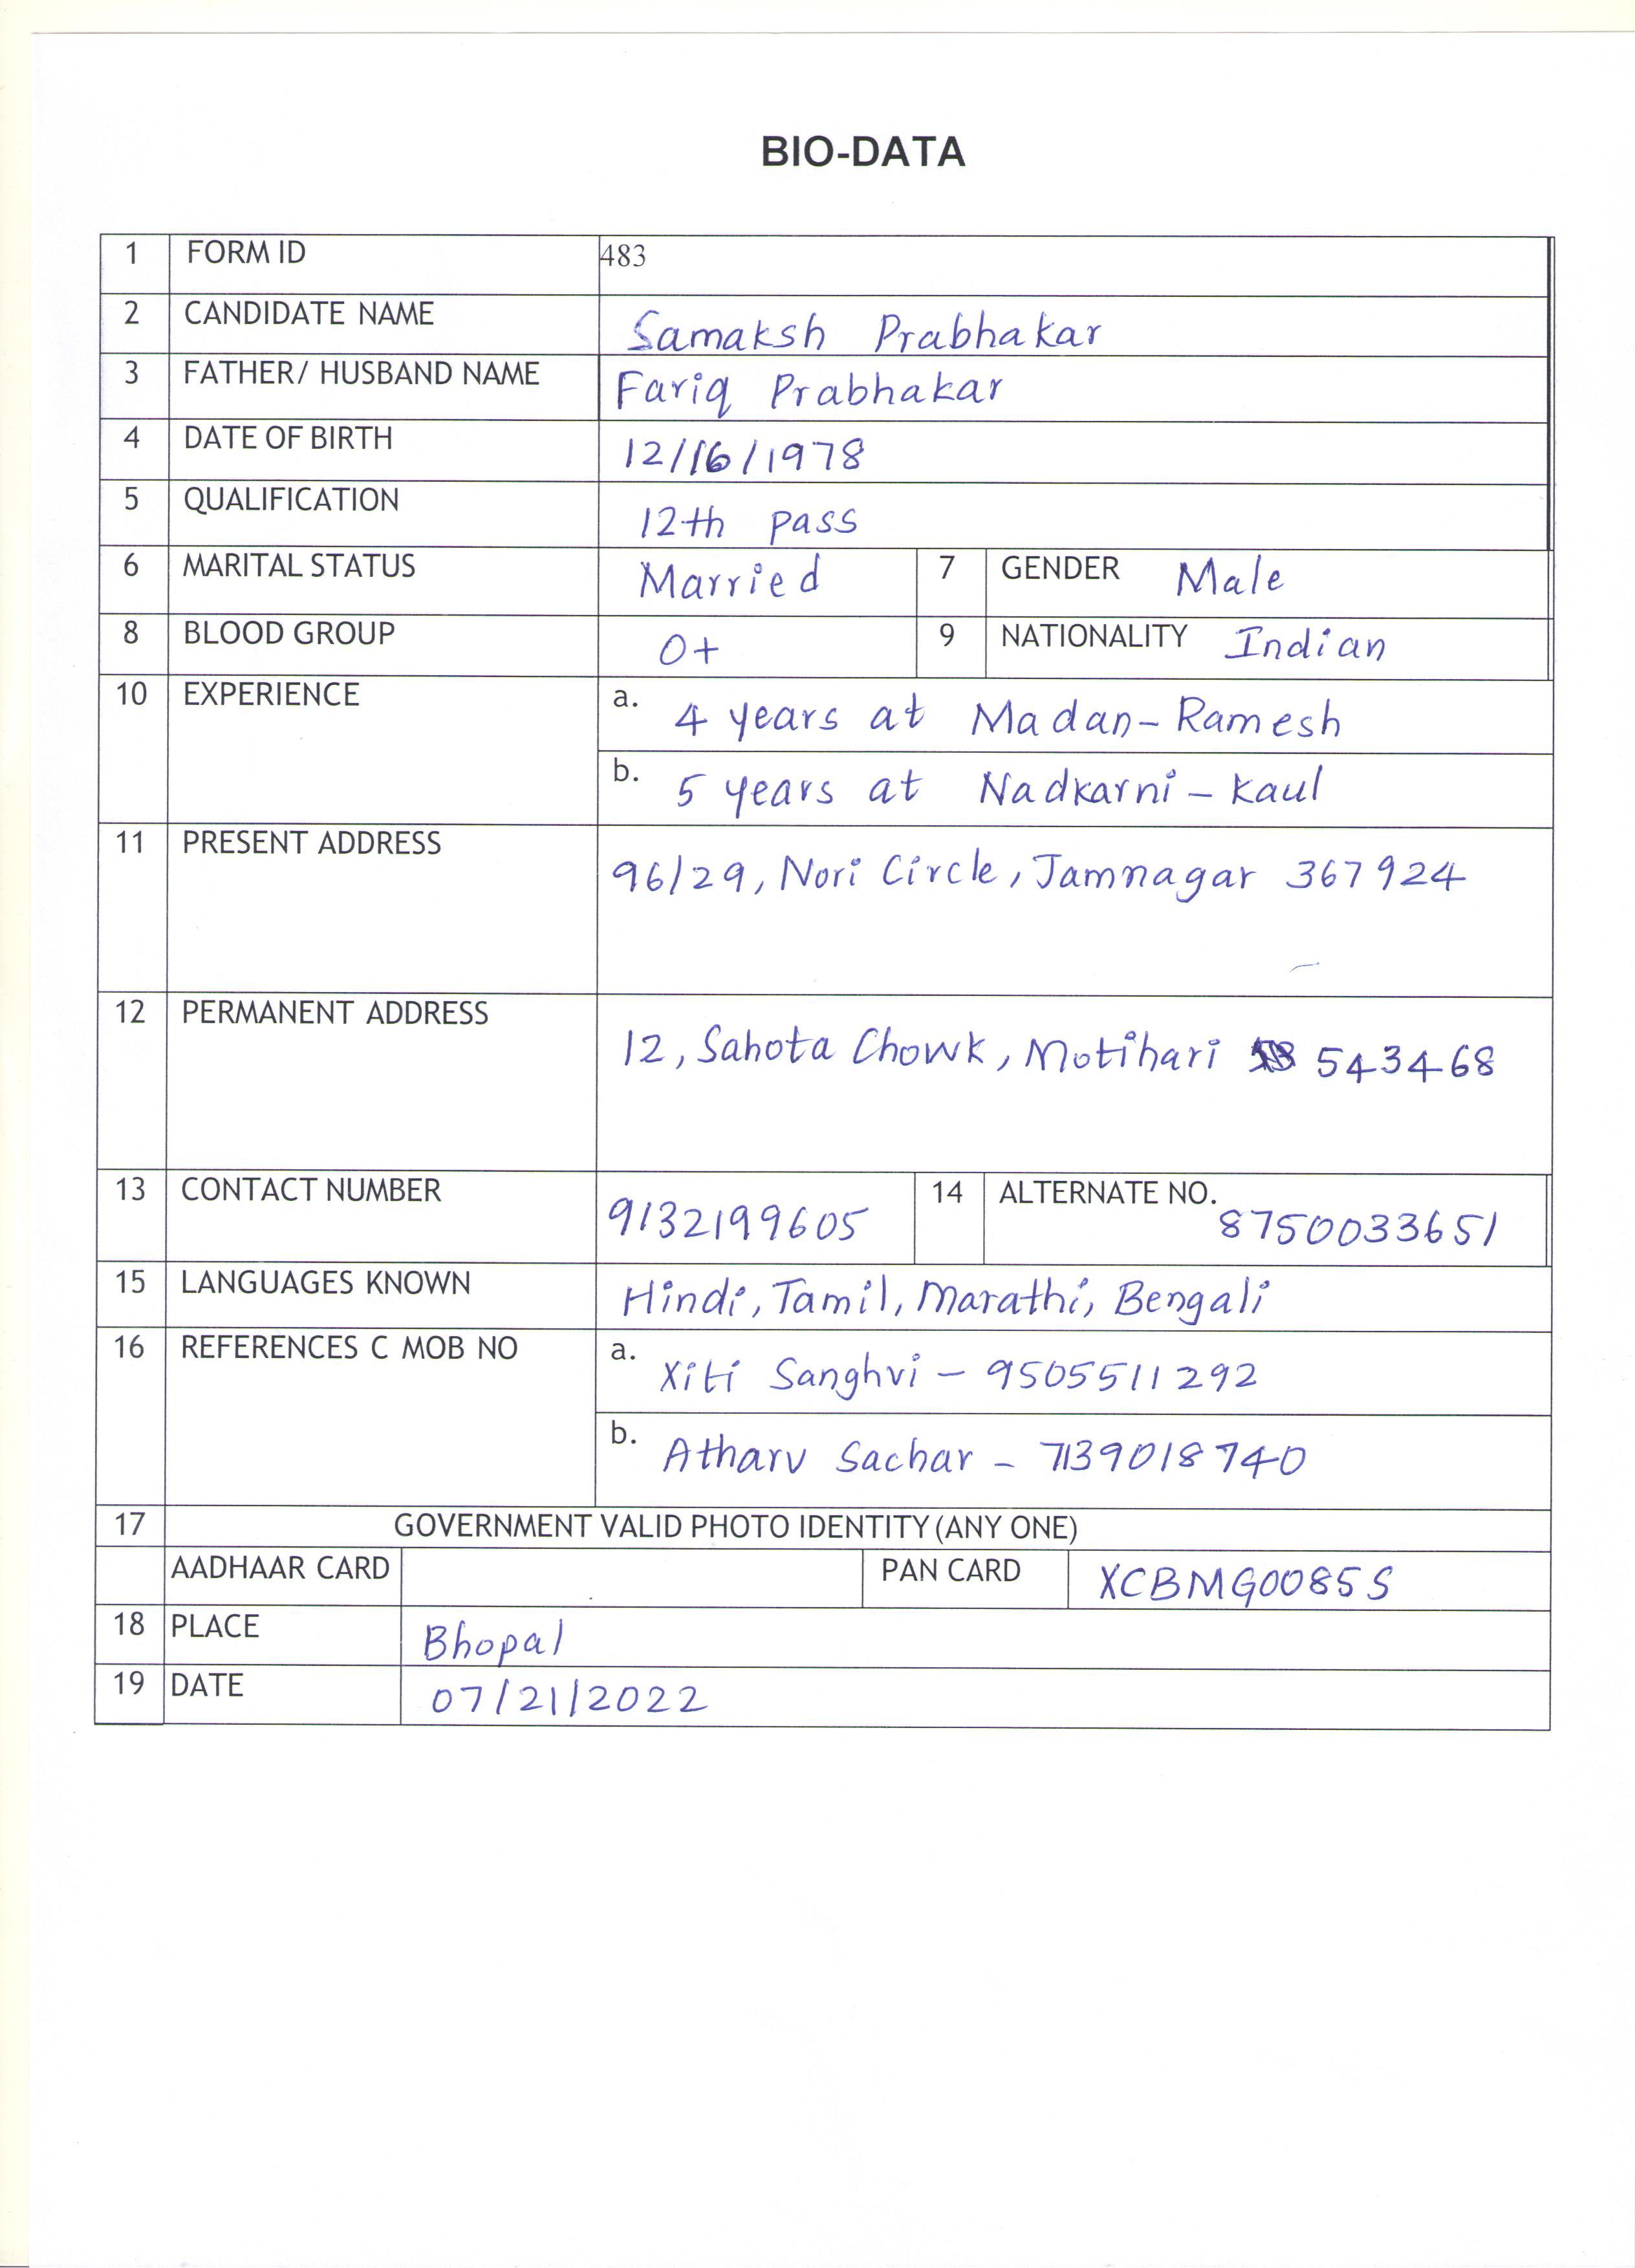 BIO-DATA
1 FORM ID 483
2 CANDIDATE NAME Samaksh Prabhakar
3 FATHER/ HUSBAND NAME Fariq Prabhakar
4 DATE OF BIRTH 12/16/1978
5 QUALIFICATION 12th pass
6 MARITAL STATUS Married 7 GENDER Male
8 BLOOD GROUP O+ 9 NATIONALITY Indian
10 EXPERIENCE a. 4 years at Madan-Ramesh
b. 5 years at Nadkarni - Kaul
11 PRESENT ADDRESS 96/29, Nori Circle, Jamnagar 367924
12 PERMANENT ADDRESS 12, Sahota Chowk, Motihari 543468
13 CONTACT NUMBER 9132199605 14 ALTERNATE NO. 8750033651
15 LANGUAGES KNOWN Hindi, Tamil, Marathi, Bengali
16 REFERENCES C MOB NO a. Xiti Sanghvi - 9505511292
b. Atharv Sachar - 7139018740
17 GOVERNMENT VALID PHOTO IDENTITY (ANY ONE)
AADHAAR CARD PAN CARD XCBMG0085S
18 PLACE Bhopal
19 DATE 07/21/2022